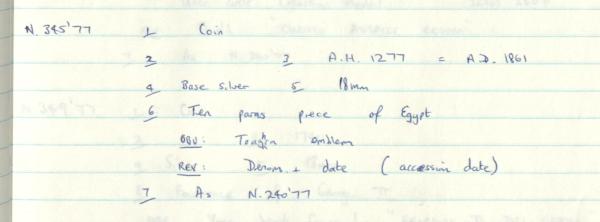 N. 345'77 1 Coin
2 3 A.H. 1277 = A.D. 1861
4 Base silver 5 18mm
6 Ten paras piece of Egypt
OBV: Toughra emblem
REV: Denom. + date (accession date)
7 As N.240'77